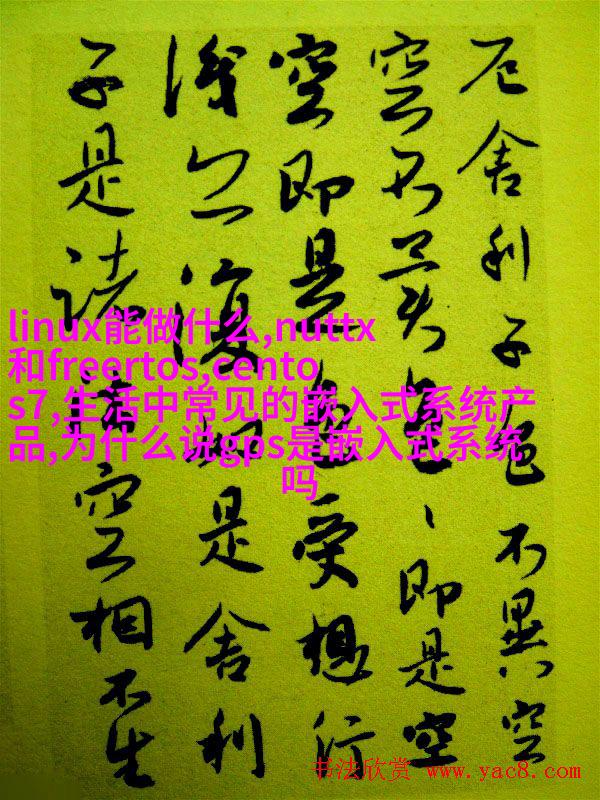 厄舍利子色不異空
空不異色、即是空
空即是色受想行
識亦復如是舍利
子是諸法空相不生
linux能做什么,nuttx
和freertos,cento
s7,生活中常见的嵌入式系统产
品,为什么说gps是嵌入式系统
吗
书法欣赏 www.yac8.com